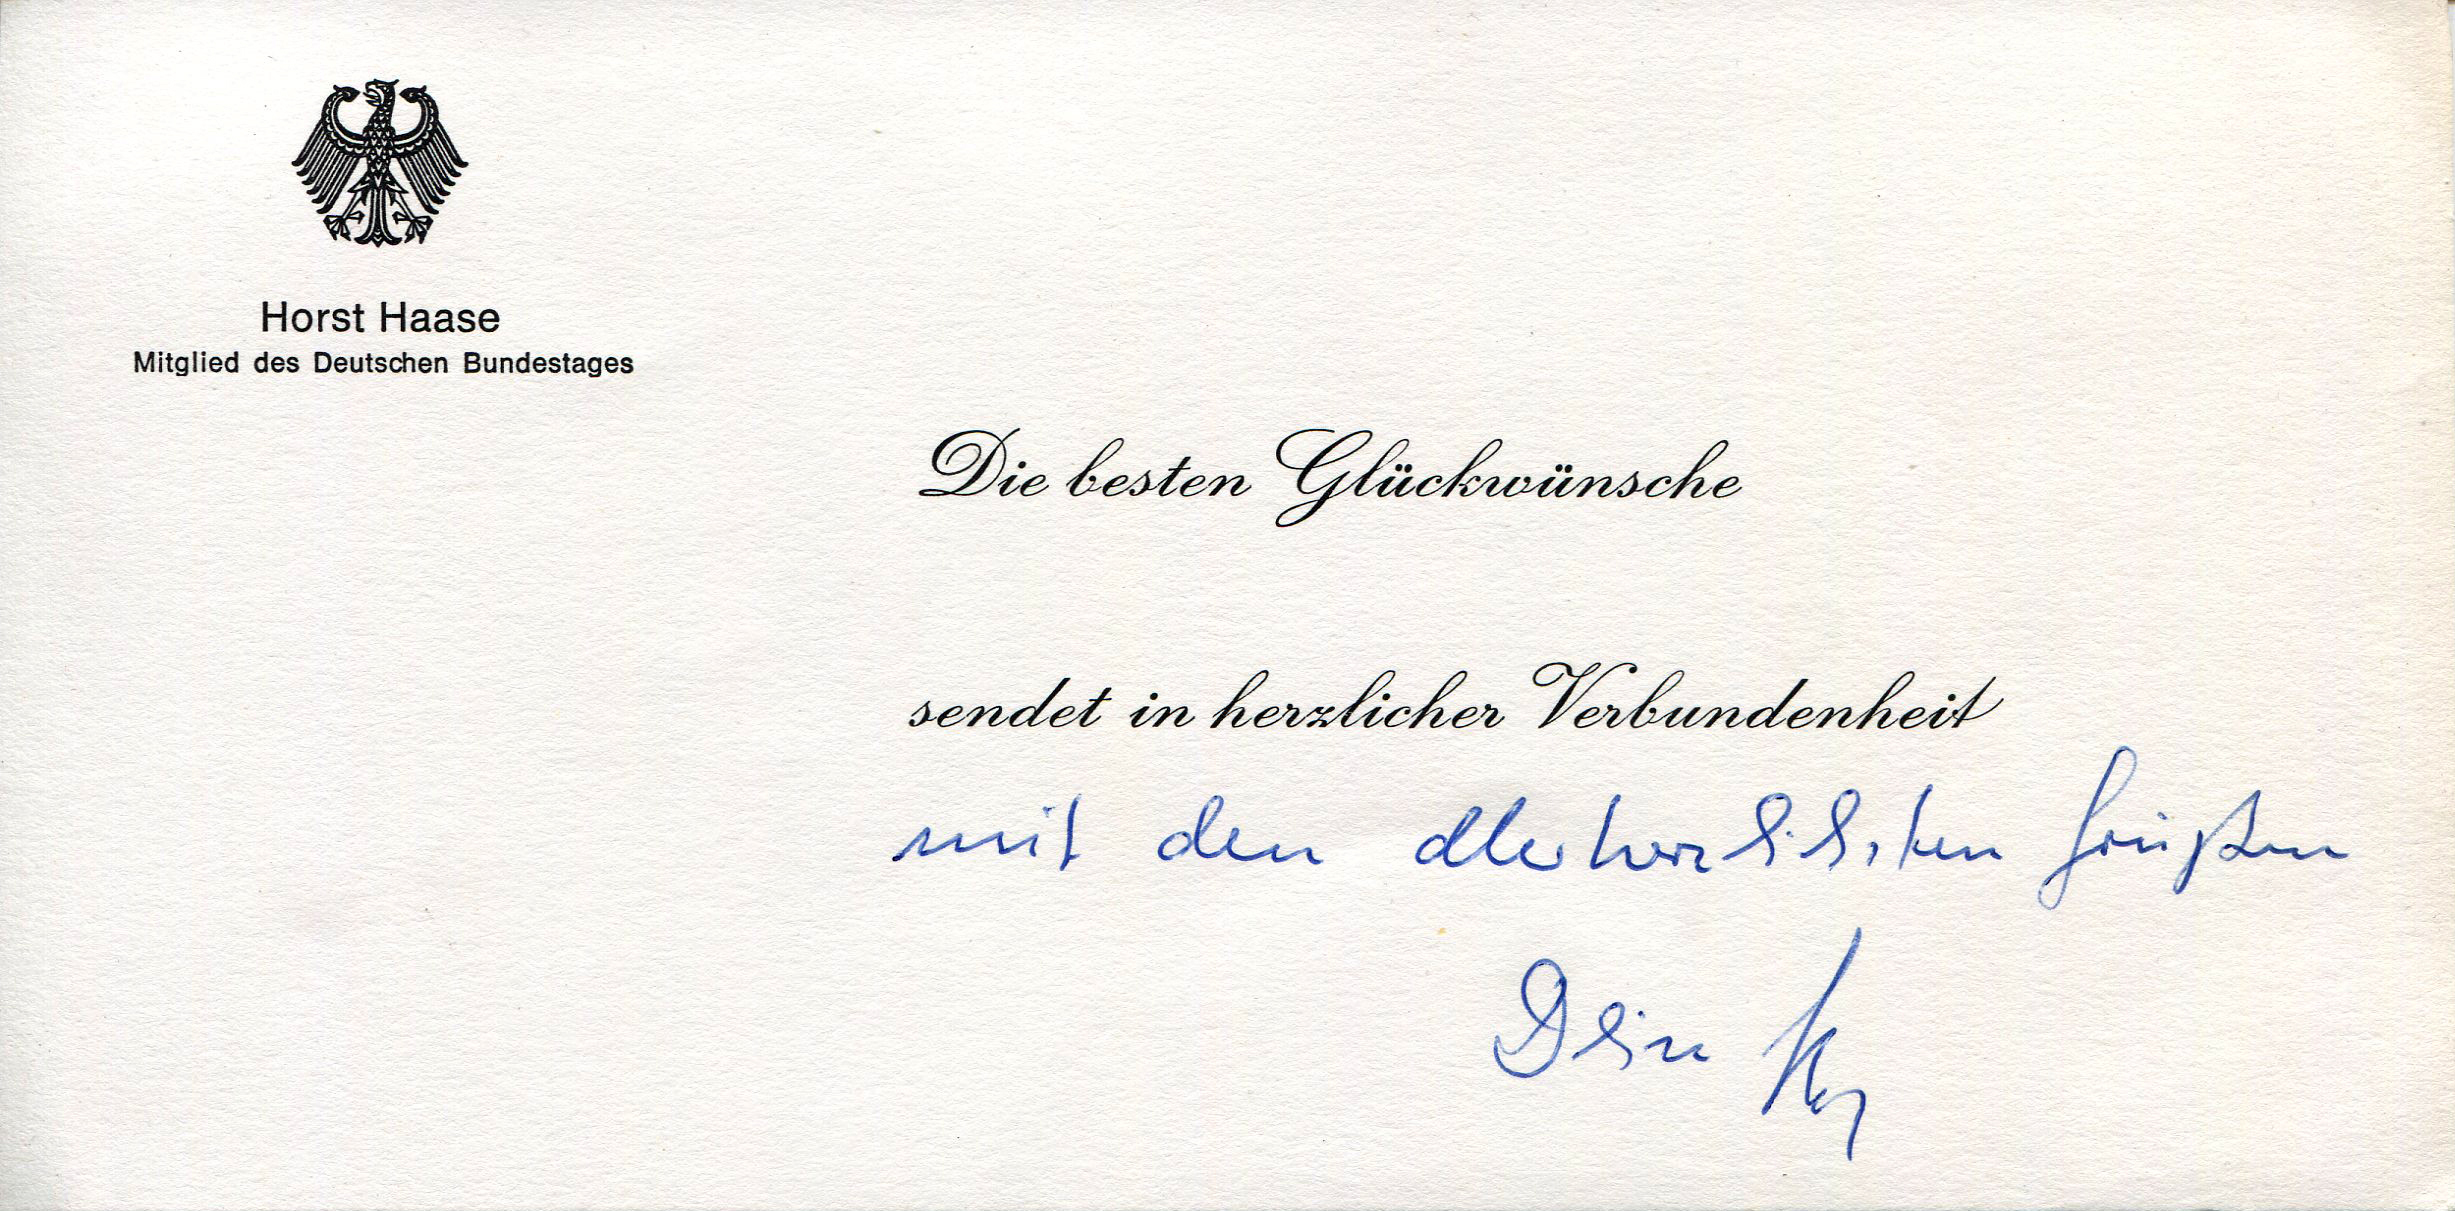 Horst Haase
Mitglied des Deutschen Bundestages
Die besten Glückwünsche
sendet in herzlicher Verbundenheit
mit den allerherzlichsten Grüßen
Dein